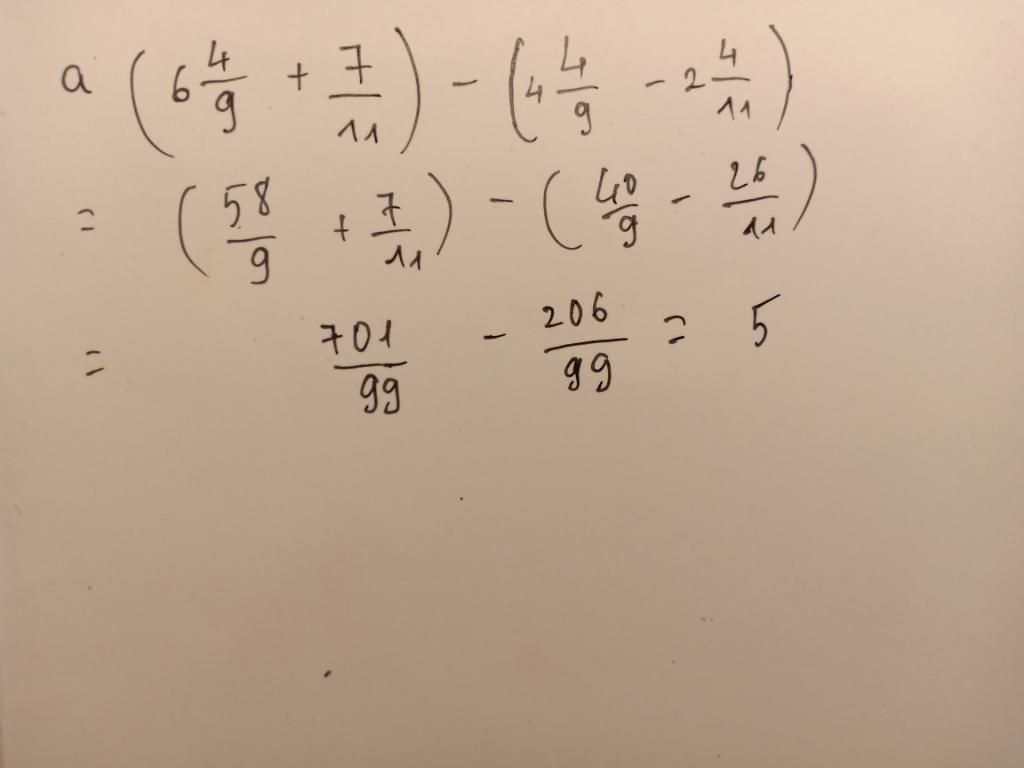 a (6 4/9 + 7/11) - (4 4/9 - 2 4/11)
= (58/9 + 7/11) - (40/9 - 26/11)
= 701/99 - 206/99 = 5